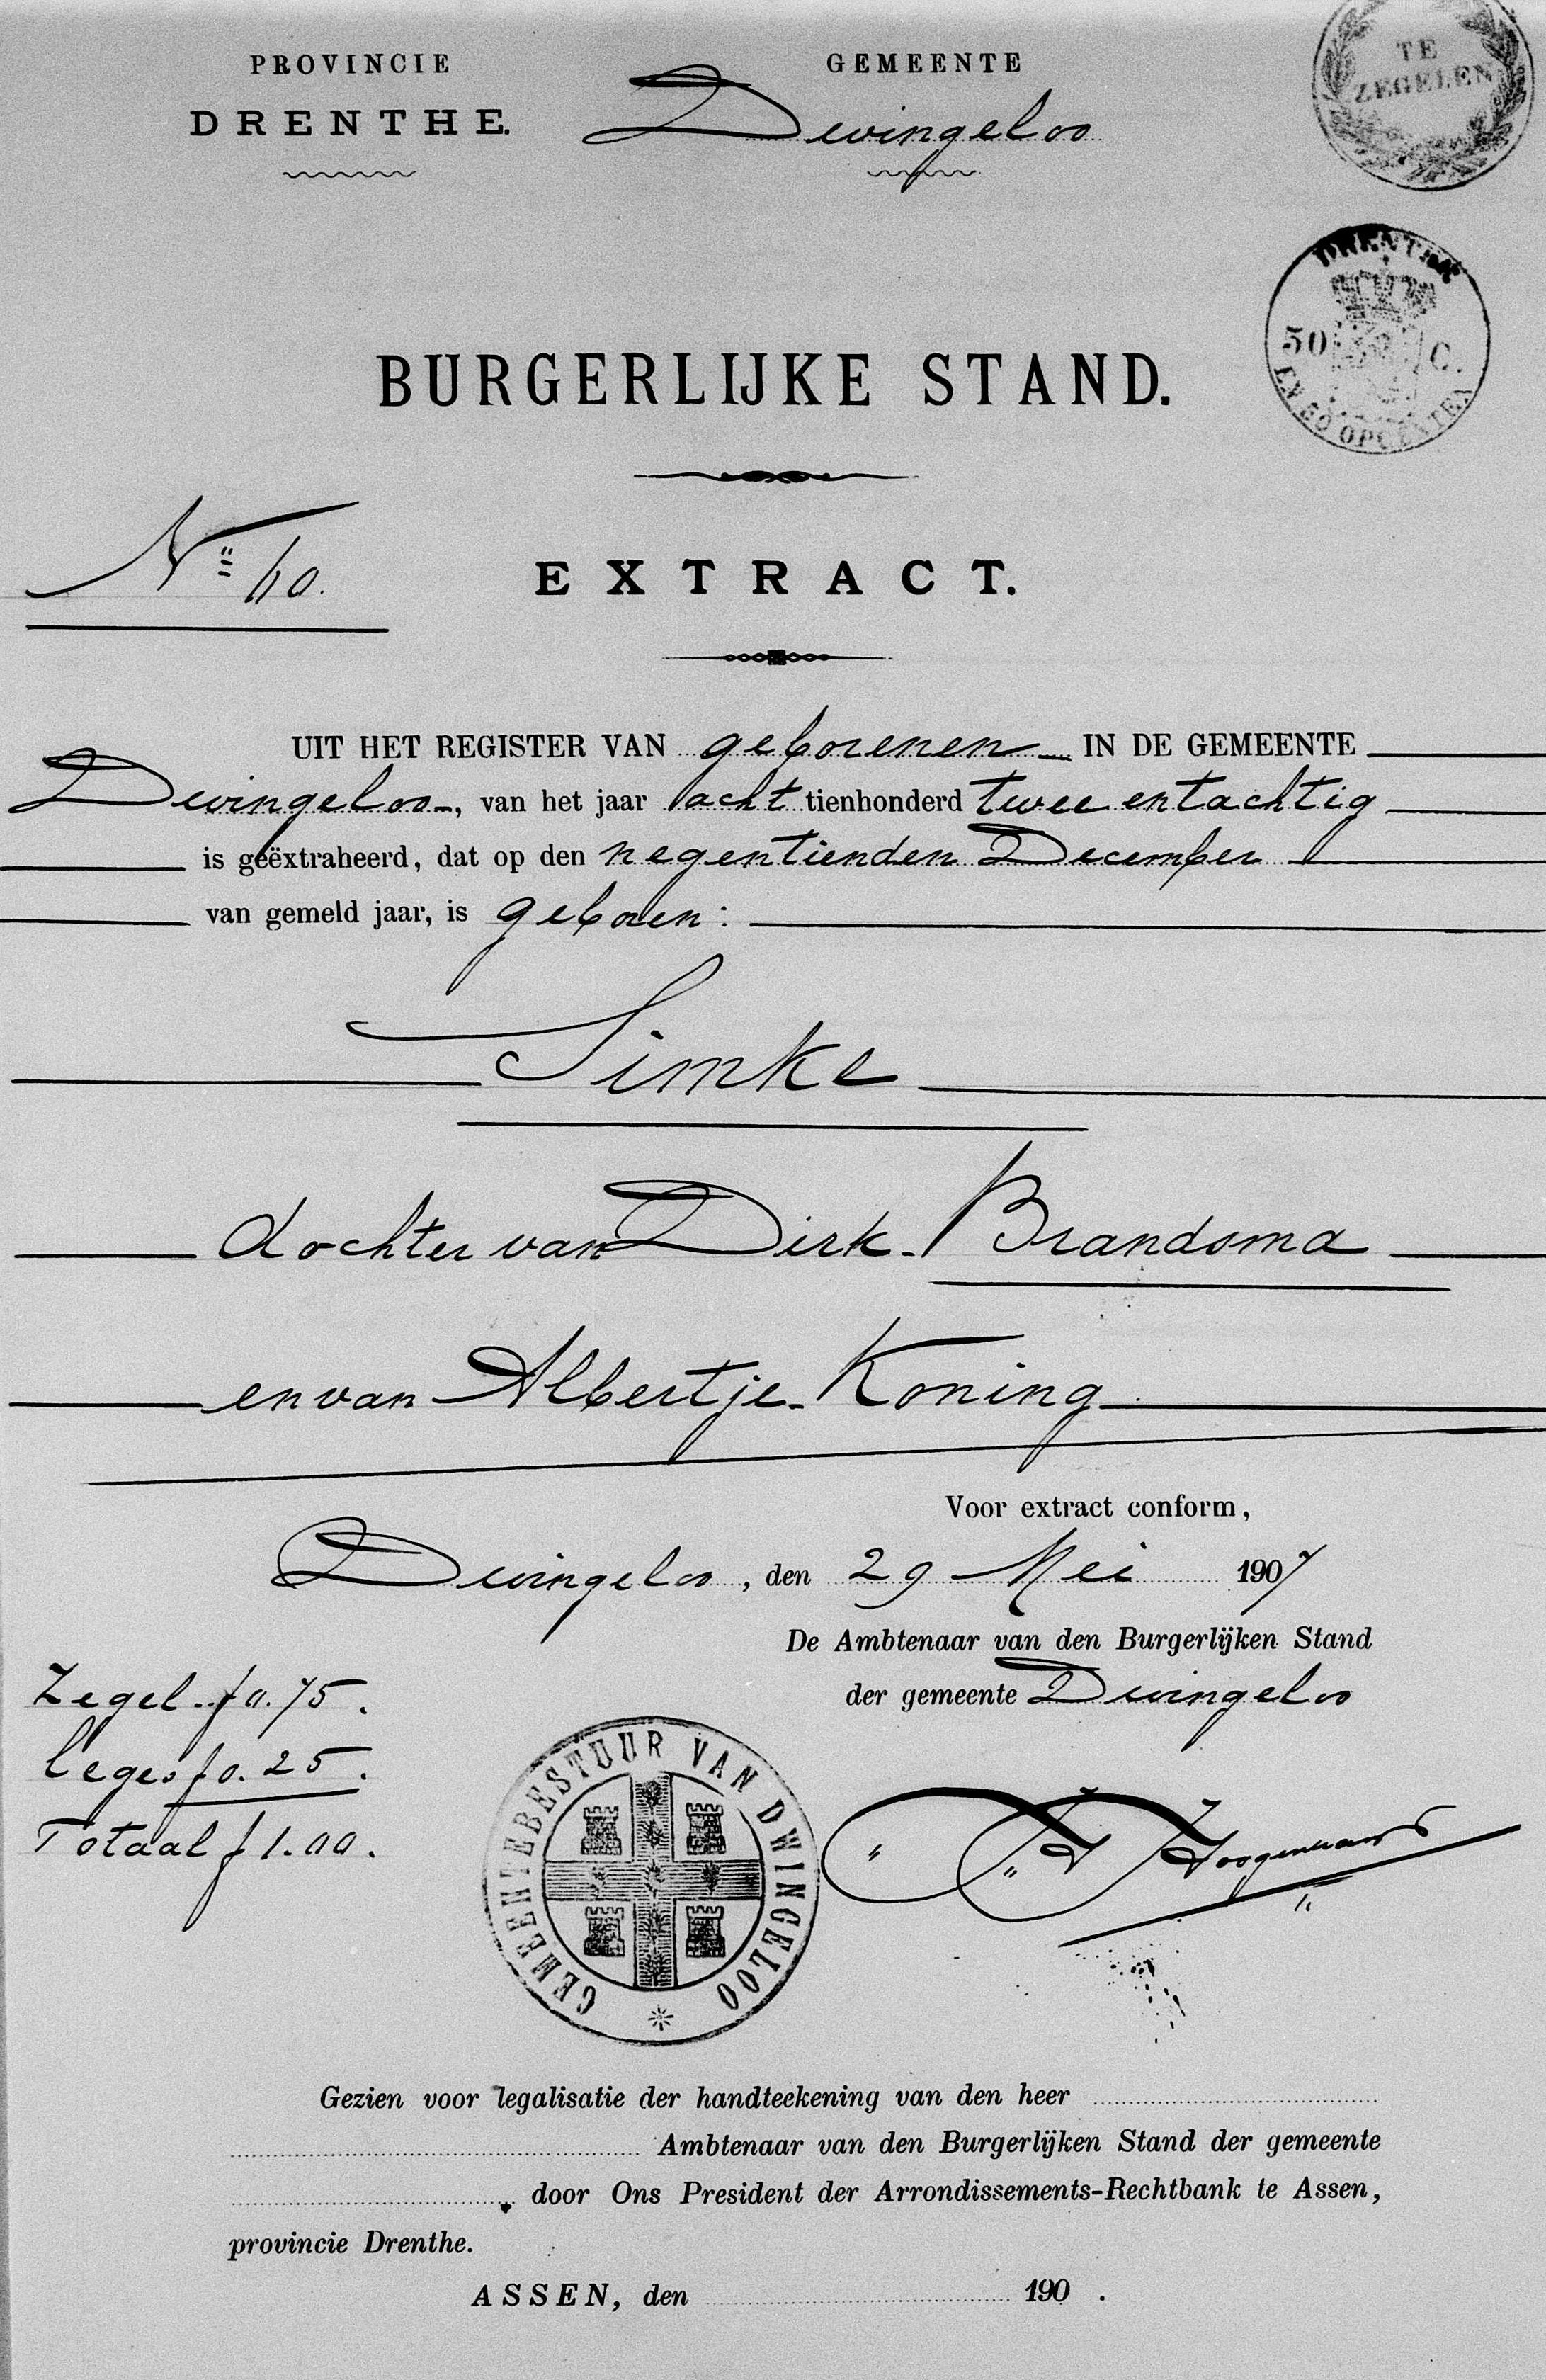 PROVINCIE
DRENTHE.
GEMEENTE
Dwingeloo
TE
ZEGELEN
DRENTHE
50 C.
EN 50 OPCENTEN
BURGERLIJKE STAND.
No 60.
EXTRACT.
UIT HET REGISTER VAN geborenen IN DE GEMEENTE
Dwingeloo, van het jaar acht tienhonderd twee en tachtig
is geëxtraheerd, dat op den negentienden December
van gemeld jaar, is geboren:
Simke
dochter van Dirk Brandsma
en van Albertje Koning
Voor extract conform,
Dwingeloo, den 29 Mei 1907
De Ambtenaar van den Burgerlijken Stand
der gemeente Dwingeloo
Zegel f 0.75.
Leges f 0.25.
Totaal f 1.00.
GEMEENTEBESTUUR VAN DWINGELOO
Gezien voor legalisatie der handteekening van den heer
Ambtenaar van den Burgerlijken Stand der gemeente
, door Ons President der Arrondissements-Rechtbank te Assen,
provincie Drenthe.
ASSEN, den 190 .